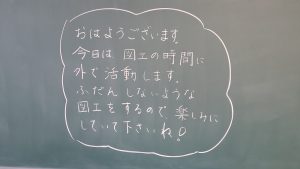 おはようございます。
今日は 図工の時間に
外で活動します。
ふだん しないような
図工をするので 楽しみに
していて下さいね!